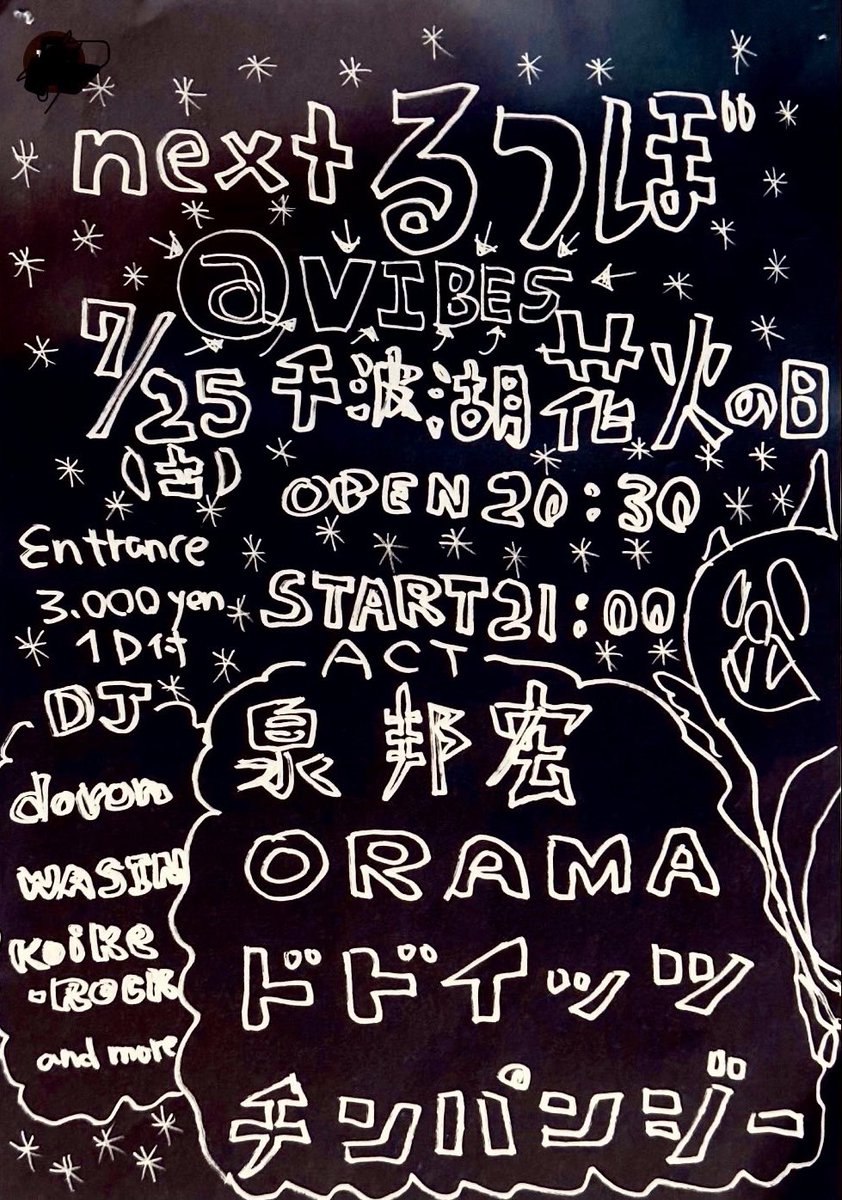 next るつぼ
@VIBES
7/25 千波湖花火の日
OPEN 20:30
Entrance
3.000yen
1D付
START 21:00
ACT
泉 邦宏
ORAMA
ドドイッツ
チンパンジー
DJ
doron
WASIN
KOiKe
-ROCK
and more